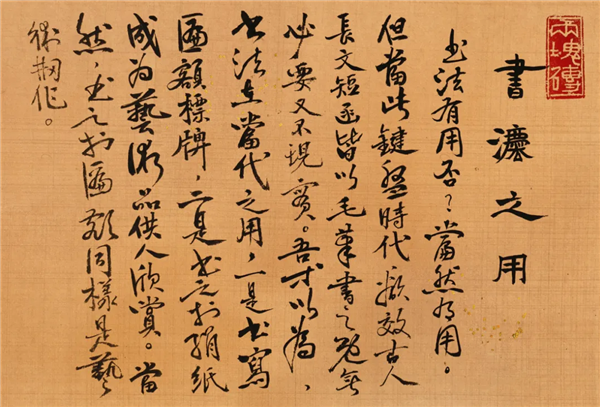 書灋之用
书法有用否?當然有用。
但當此鍵盤時代欲效古人
長文短函皆以毛筆書之既無
必要又不現實。吾以為、
书法在當代之用,一是书寫
匾額標牌,二是书之於絹紙
成为藝術品供人欣賞。當
然,书之於匾額同樣是藝
術創作。
塊磚